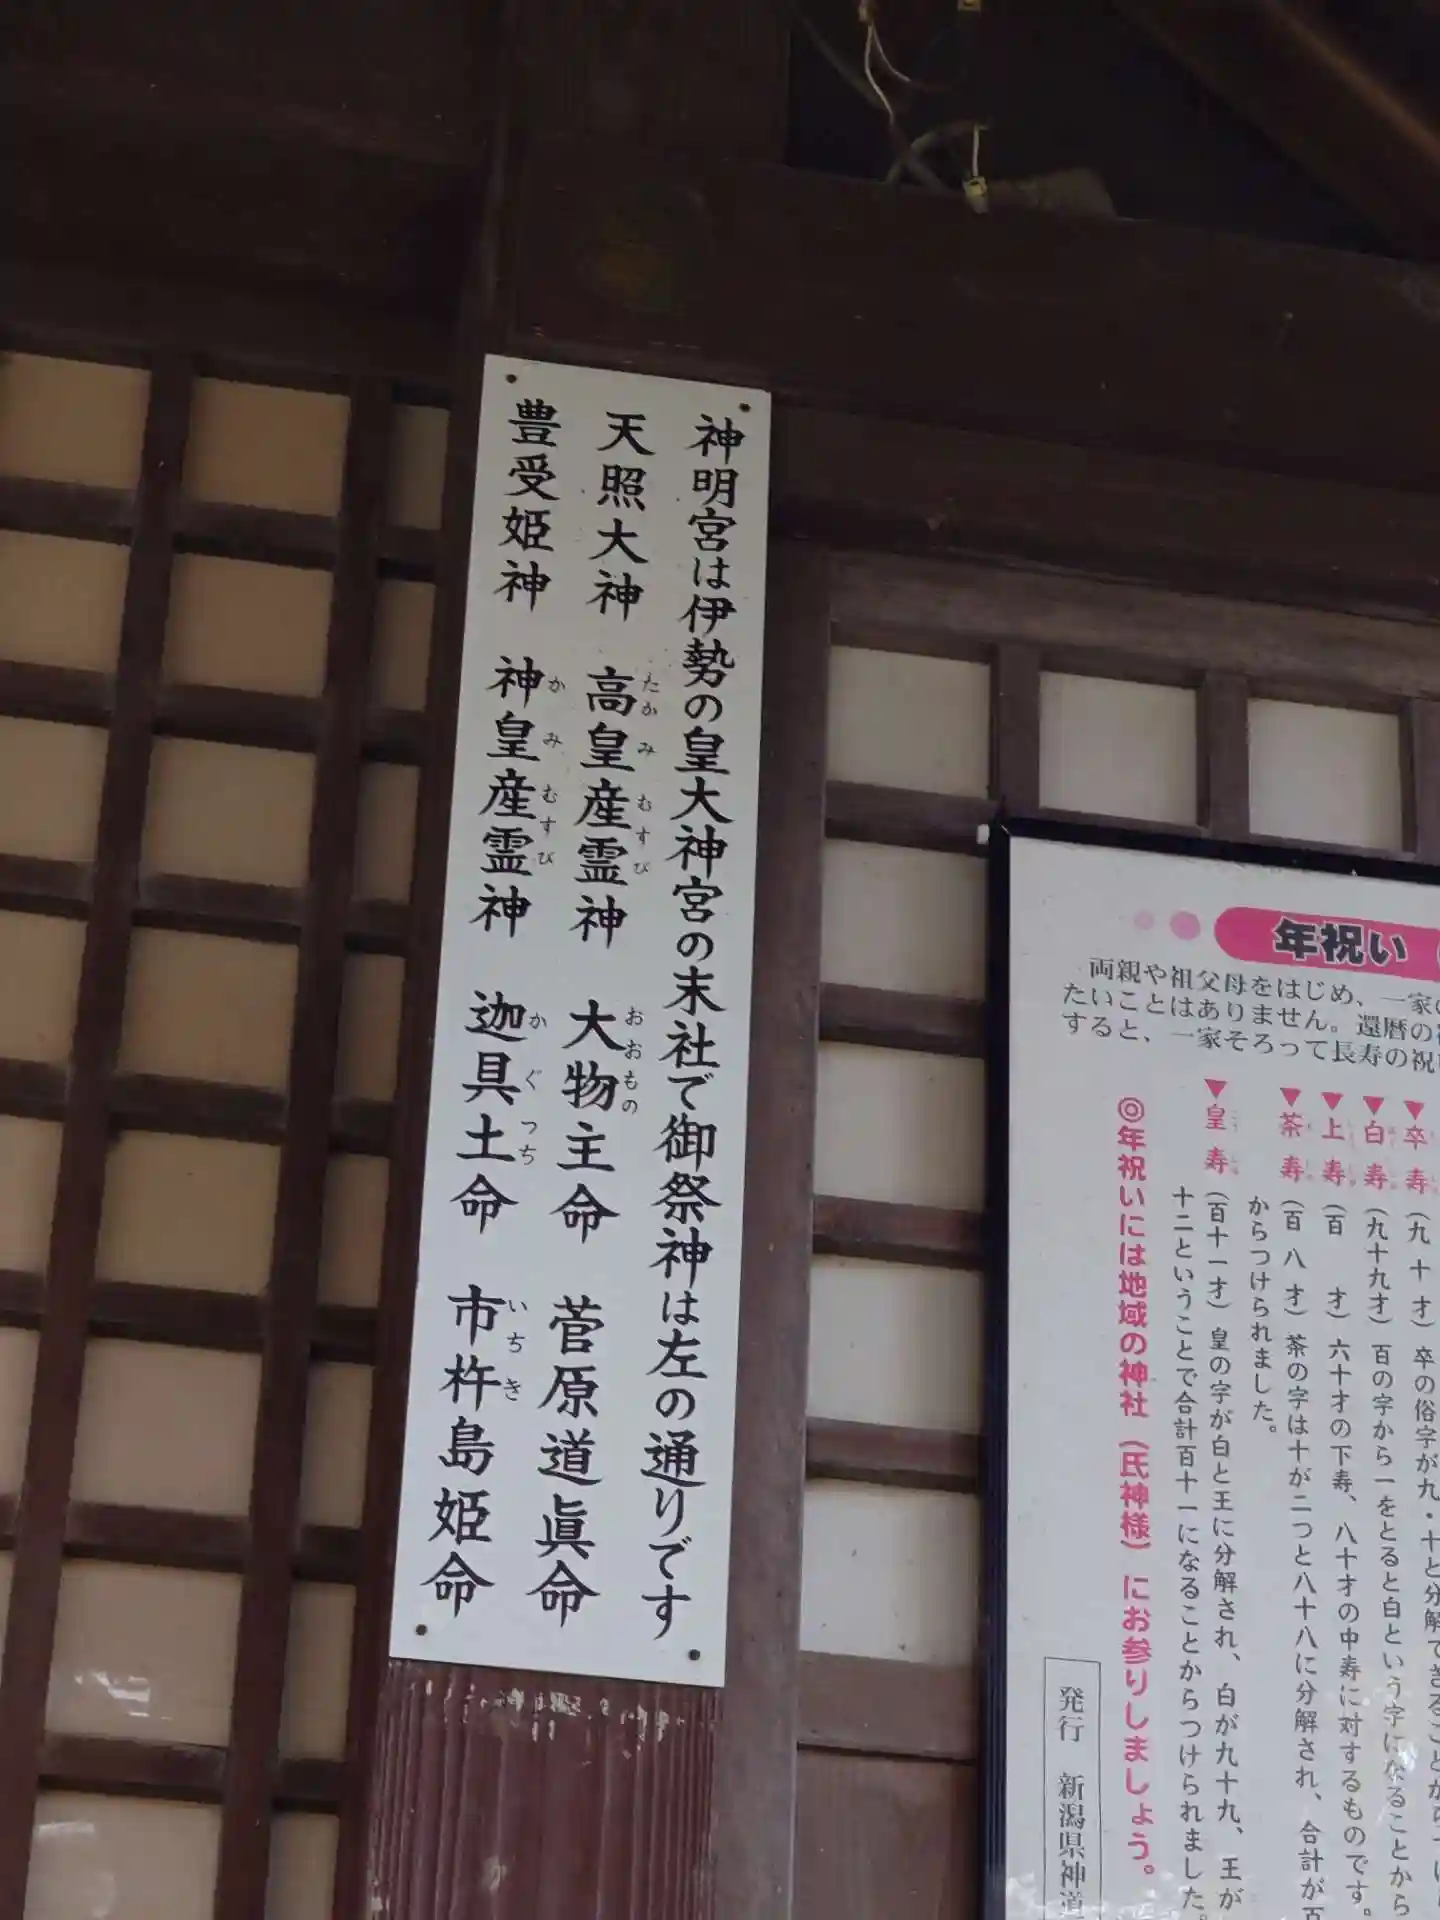 神明宮は伊勢の皇大神宮の末社で御祭神は左の通りです
天照大神 高皇産霊神 大物主命 菅原道眞命
たかみむすび おおもの
豊受姫神 神皇産霊神 迦具土命 市杵島姫命
かみむすび かぐつち いちき
年祝い
両親や祖父母をはじめ、一家の
たいことはありません。還暦の
すると、一家そろって長寿の祝
▼卒寿(九十才)卒の俗字が九・十と分解できることから
▼白寿(九十九才)百の字から一をとると白という字になることから
▼上寿(百才)六十才の下寿、八十才の中寿に対するものです。
▼茶寿(百八才)茶の字は十が二つと八十八に分解され、合計が百
からつけられました。
▼皇寿(百十一才)皇の字が白と王に分解され、白が九十九、王が
十二ということで合計百十一になることからつけられました。
◎年祝いには地域の神社(氏神様)にお参りしましょう。
発行 新潟県神道